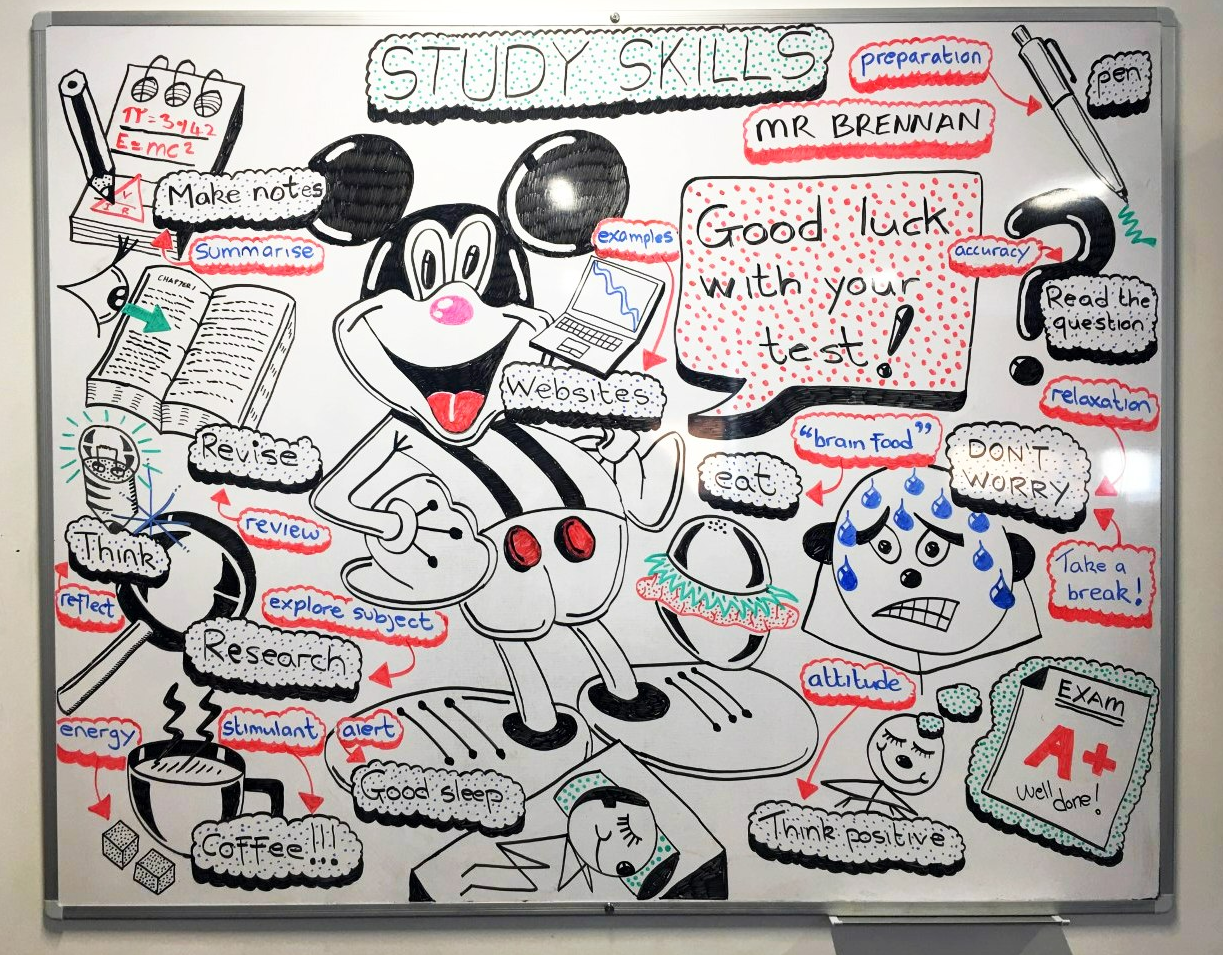 STUDY SKILLS
preparation
pen
MR BRENNAN
π=3.142
E=mc²
Make notes
Summarise
examples
Good luck
with your
test!
accuracy
Read the
question
CHAPTER 1
Websites
relaxation
"brain food"
DON'T
WORRY
Revise
eat
review
Think
Take a
break!
reflect
explore subject
Research
attitude
EXAM
A+
Well done!
energy
stimulant
alert
Good sleep
Coffee!!!
Think positive